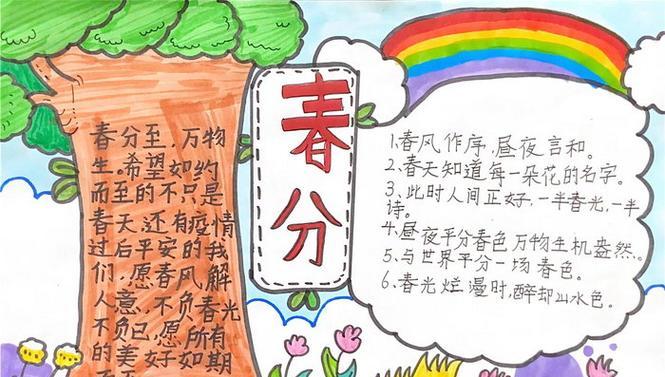 春分至,万物
生。希望如约
而至的不只是
春天,还有疫情
过后平安的我
们,愿春风解
人意,不负春光
不负己,愿所有
的美好如期
春分
1、春风作序,昼夜言和。
2、春天知道每一朵花的名字。
3、此时人间正好,一半春光,一半
诗。
4、昼夜平分春色,万物生机盎然。
5、与世界平分一场春色。
6、春光烂漫时,醉却山水色。